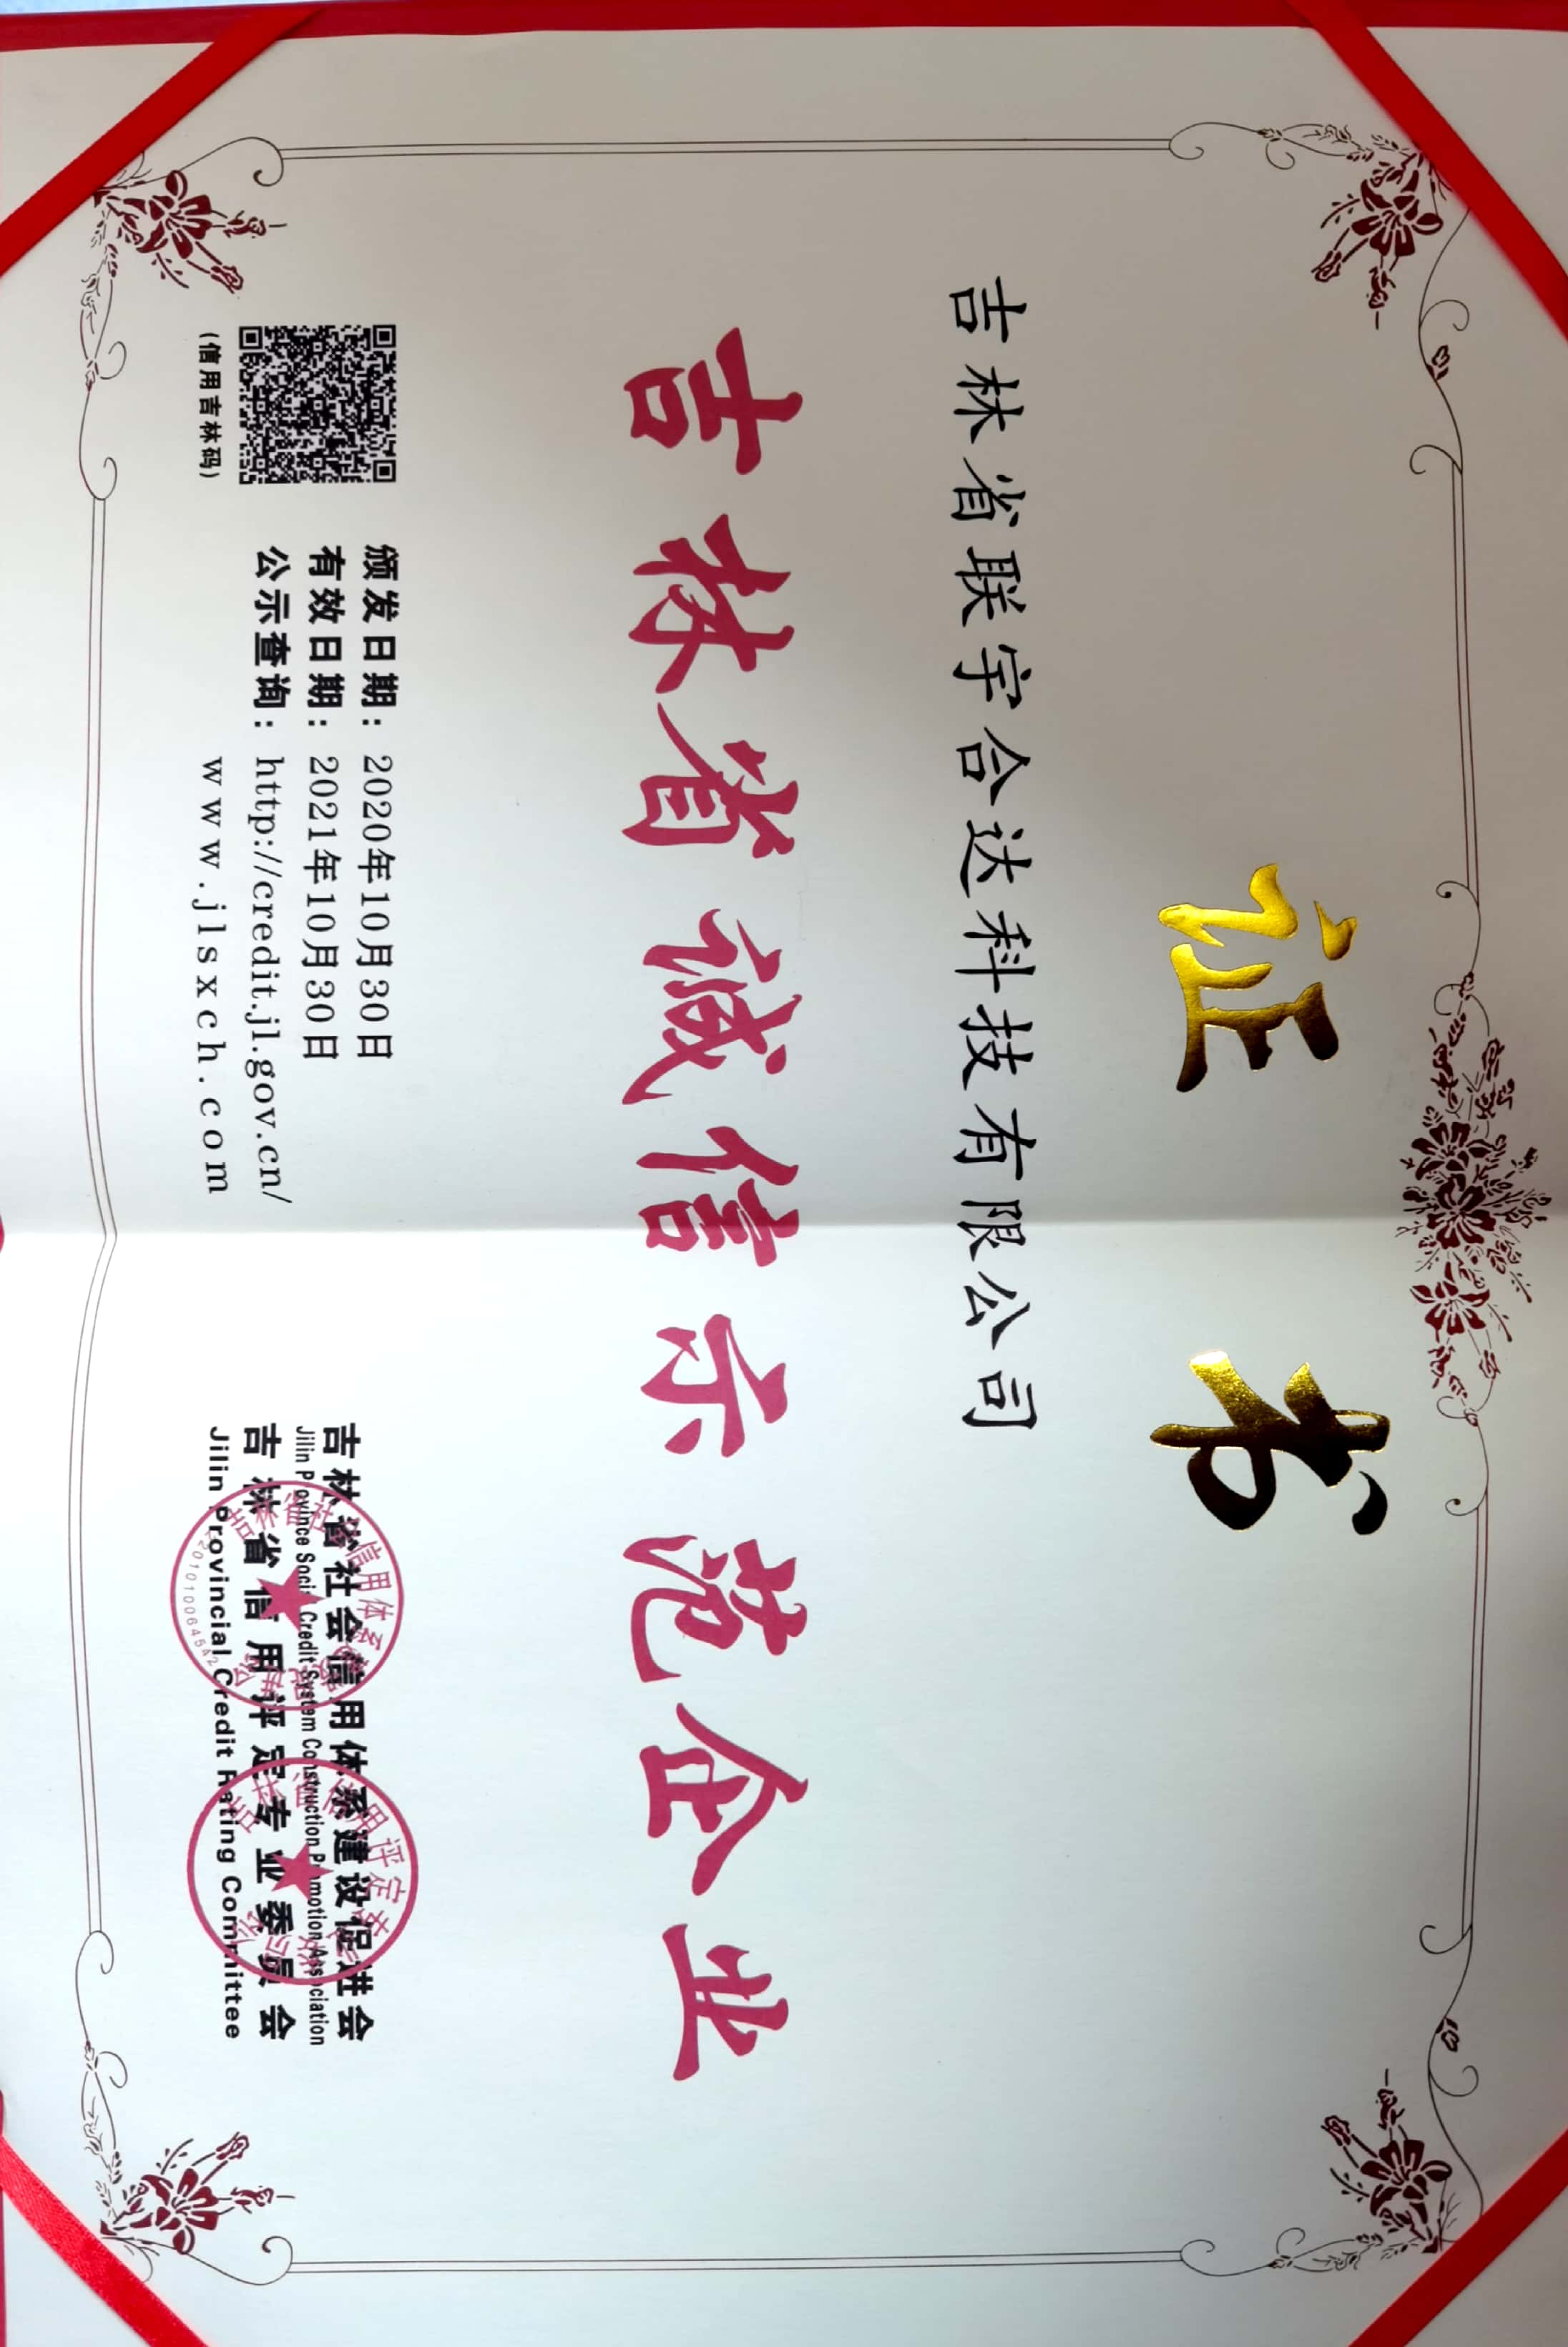 证书
吉林省联宇合达科技有限公司
吉林省诚信示范企业
(信用吉林码)
颁发日期：2020年10月30日
有效日期：2021年10月30日
公示查询：http://credit.jl.gov.cn/
www.jlsxch.com
吉林省社会信用体系建设促进会
Jilin Province Social Credit System Construction Promotion Association
吉林省信用评定专业委员会
Jilin Provincial Credit Rating Committee